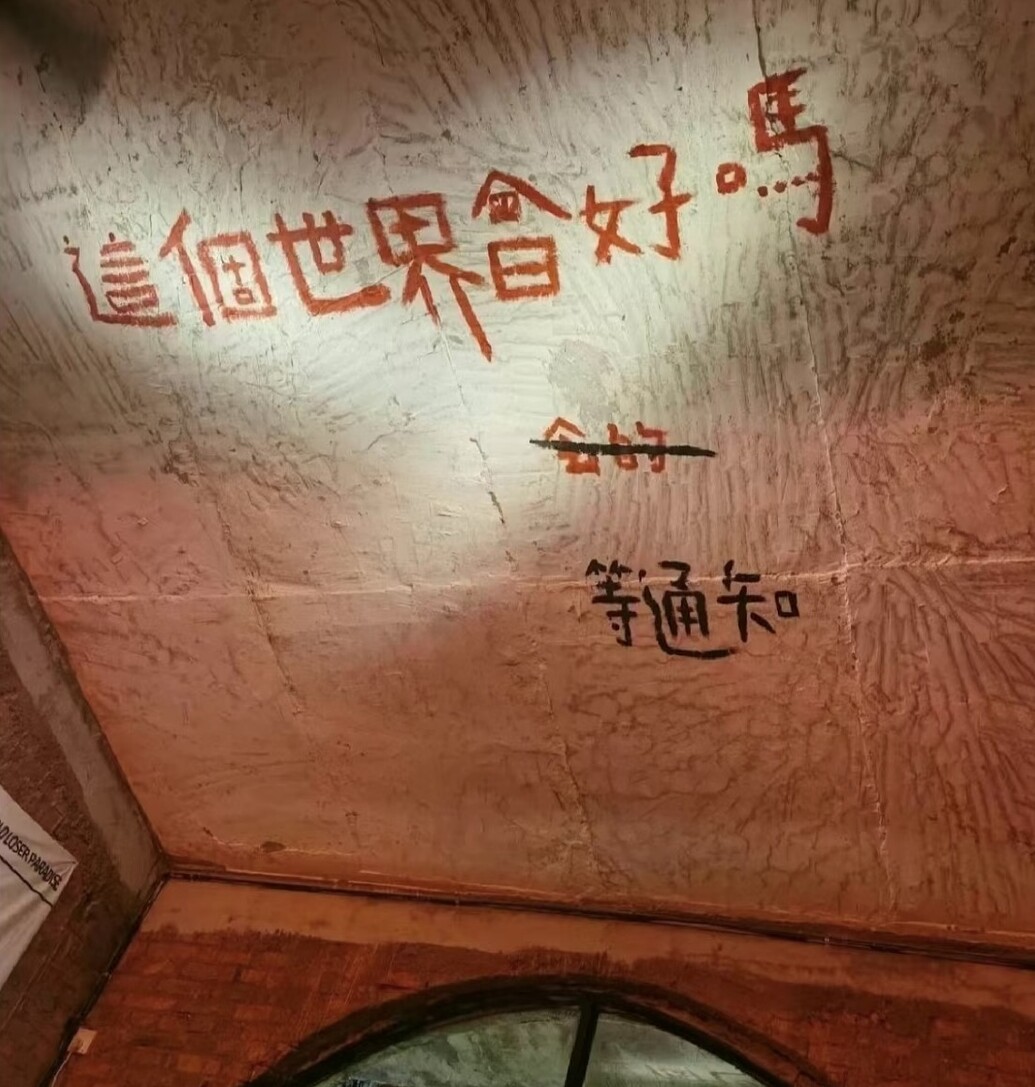 這個世界會好嗎
会的
等通知
LOSER PARADISE